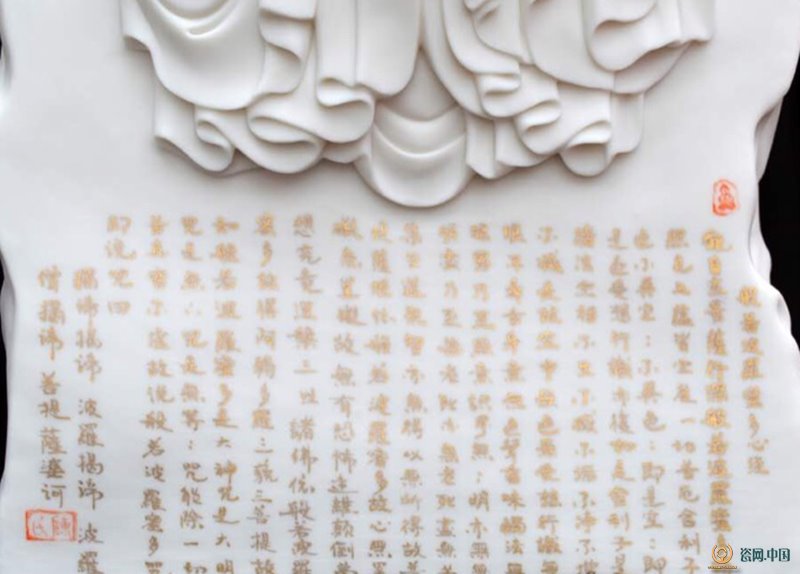 般若波羅蜜多心經
觀自在菩薩行深般若波羅蜜多
照見五蘊皆空度一切苦厄舍利子
色不異空：不異色：即是空：即
是受想行識亦復如是舍利子是
諸法空相不生不滅不垢不淨不增
不減是故空中無色無受想行識無
眼耳鼻舌身意無色聲香味觸法無
眼界乃至無意識界無：明亦無無
明盡乃至無老死亦無老死盡無苦
集滅道無智亦無得以無所得故菩
提薩埵依般若波羅蜜多故心無罣
礙無罣礙故無有恐怖遠離顛倒夢
想究竟涅槃三世諸佛依般若波羅
蜜多故得阿耨多羅三藐三菩提故
知般若波羅蜜多是大神咒是大明
咒是無上咒是無等：咒能除一切
苦真實不虛故說般若波羅蜜多咒
即說咒曰
揭諦揭諦 波羅揭諦 波羅
僧揭諦 菩提薩婆訶
瓷网.中国